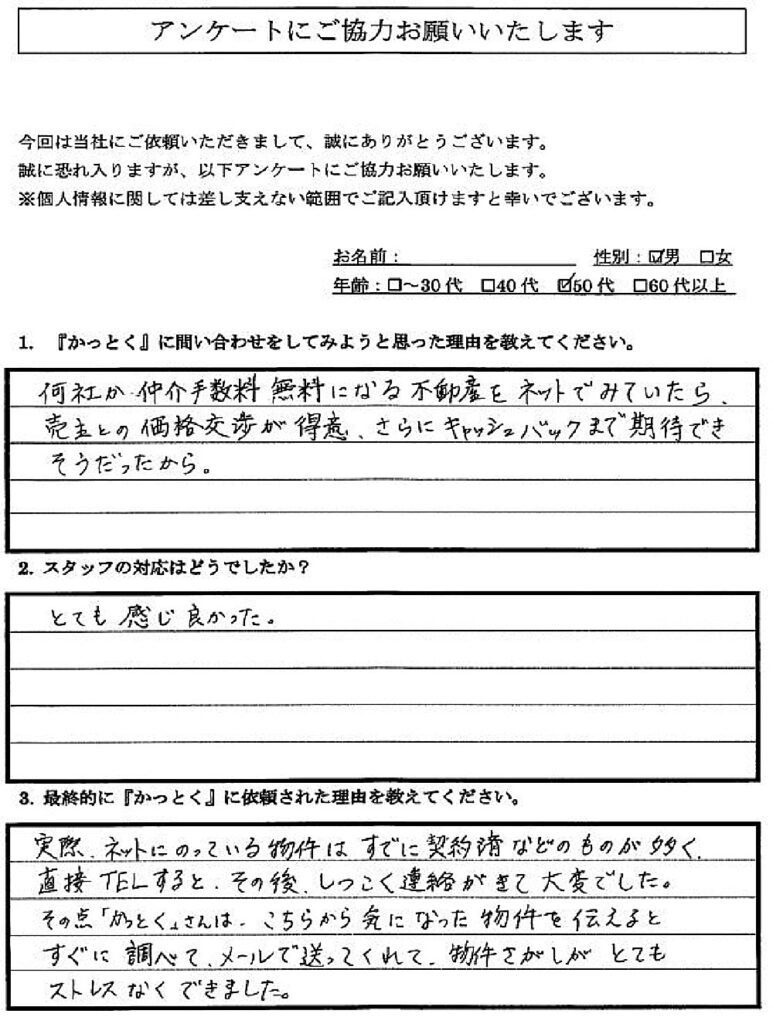 アンケートにご協力お願いいたします
今回は当社にご依頼いただきまして、誠にありがとうございます。
誠に恐れ入りますが、以下アンケートにご協力お願いいたします。
※個人情報に関しては差し支えない範囲でご記入頂けますと幸いでございます。
お名前: 性別:☑男 □女
年齢:□～30代 □40代 ☑50代 □60代以上
1. 『かっとく』に問い合わせをしてみようと思った理由を教えてください。
何社か仲介手数料無料になる不動産をネットでみていたら、
売主との価格交渉が得意、さらにキャッシュバックまで期待でき
そうだったから。
2. スタッフの対応はどうでしたか?
とても感じ良かった。
3. 最終的に『かっとく』に依頼された理由を教えてください。
実際、ネットにのっている物件はすでに契約済などのものが多く、
直接TELすると、その後、しつこく連絡がきて大変でした。
その点「かっとく」さんは、こちらから気になった物件を伝えると
すぐに調べて、メールで送ってくれて、物件さがしがとても
ストレスなくできました。